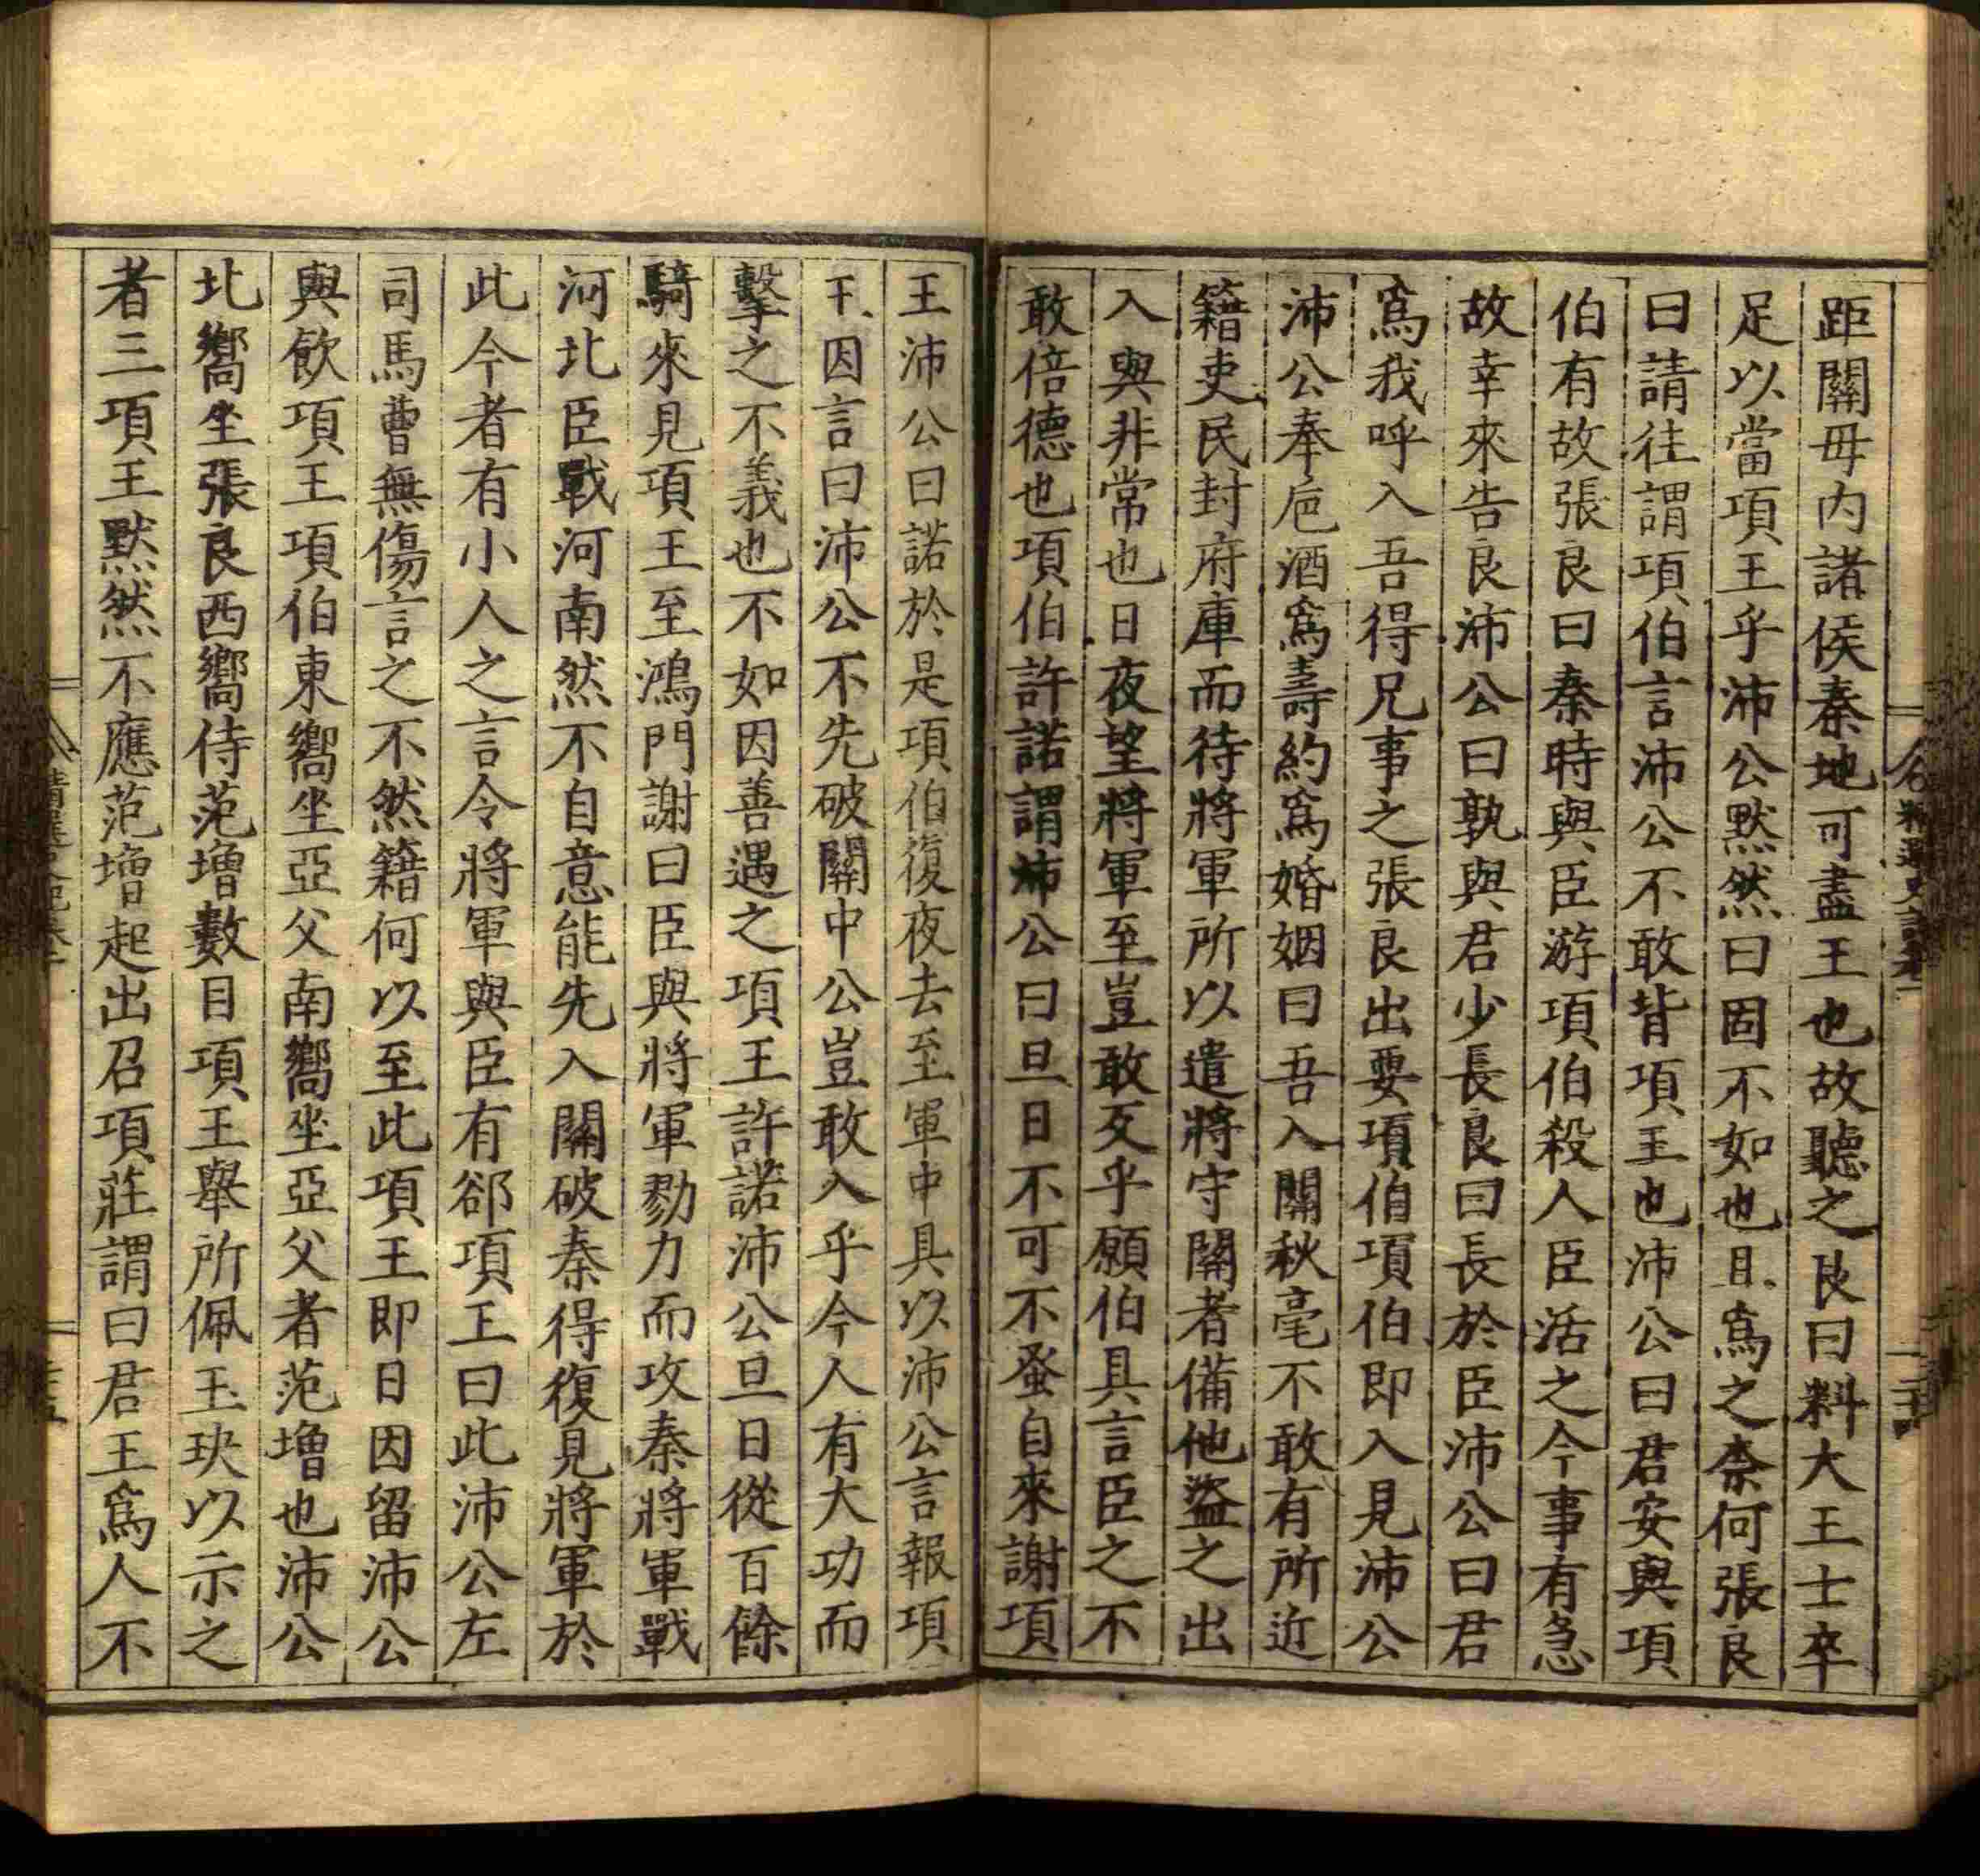 距關毋内諸侯秦地可盡王也故聽之良曰料大王士卒
足以當項王乎沛公默然曰固不如也且爲之柰何張良
曰請往謂項伯言沛公不敢背項王也沛公曰君安與項
伯有故張良曰秦時與臣游項伯殺人臣活之今事有急
故幸來告良沛公曰孰與君少長良曰長於臣沛公曰君
爲我呼入吾得兄事之張良出要項伯項伯即入見沛公
沛公奉巵酒爲壽約爲婚姻曰吾入關秋毫不敢有所近
籍吏民封府庫而待將軍所以遣將守關者備他盜之出
入與非常也日夜望將軍至豈敢反乎願伯具言臣之不
敢倍德也項伯許諾謂沛公曰旦日不可不蚤自來謝項
王沛公曰諾於是項伯復夜去至軍中具以沛公言報項
王因言曰沛公不先破關中公豈敢入乎今人有大功而
擊之不義也不如因善遇之項王許諾沛公旦日從百餘
騎來見項王至鴻門謝曰臣與將軍勠力而攻秦將軍戰
河北臣戰河南然不自意能先入關破秦得復見將軍於
此今者有小人之言令將軍與臣有郤項王曰此沛公左
司馬曹無傷言之不然籍何以至此項王即日因留沛公
與飲項王項伯東嚮坐亞父南嚮坐亞父者范增也沛公
北嚮坐張良西嚮侍范增數目項王舉所佩玉玦以示之
者三項王默然不應范增起出召項莊謂曰君王爲人不